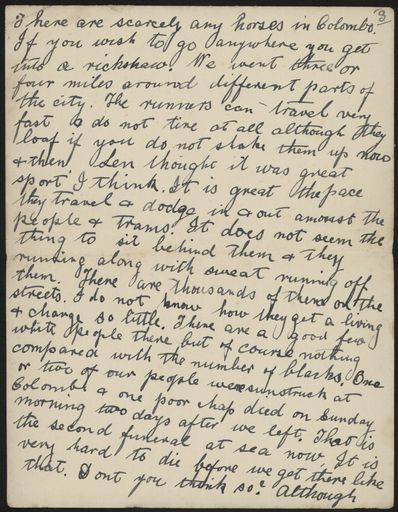 3
There are scarcely any horses in Colombo.
If you wish to go anywhere you get
into a rickshaw. We went three or
four miles around different parts of
the city. The runners can travel very
fast & do not tire at all although they
loaf if you do not shake them up now
& then. Len thought it was great
sport I think. It is great the pace
they travel & dodge in & out amonst the
people & trams. It does not seem the
thing to sit behind them & they
running along with sweat running off
them. There are thousands of them on the
streets. I do not know how they get a living
& charge so little. There are a good few
white people there but of course nothing
compared with the number of blacks. One
or two of our people were sunstruck at
Colombo & one poor chap died on Sunday
morning two days after we left. That is
the second funeral at sea now. It is
very hard to die before we get there like
that. Dont you think so? Although